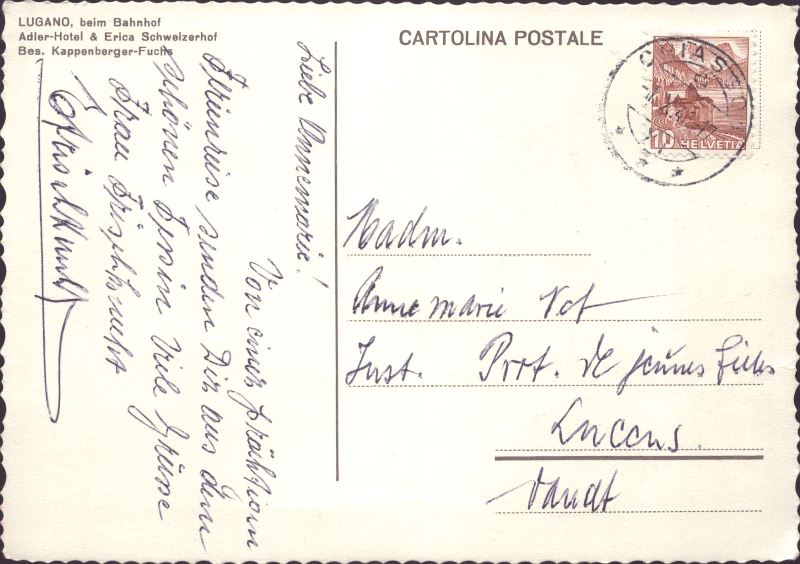 LUGANO, beim Bahnhof
Adler-Hotel & Erica Schweizerhof
Bes. Kappenberger-Fuchs
CARTOLINA POSTALE
CHIASSO
10 HELVETIA
Liebe Annemarie!
Von einer prächtigen
Ferienreise senden Dir aus dem
schönen Tessin Viele Grüsse
Frau Frischknecht
Madm.
Annemarie
Inst. Prot. de jeunes filles
Lucens.
Vaudt